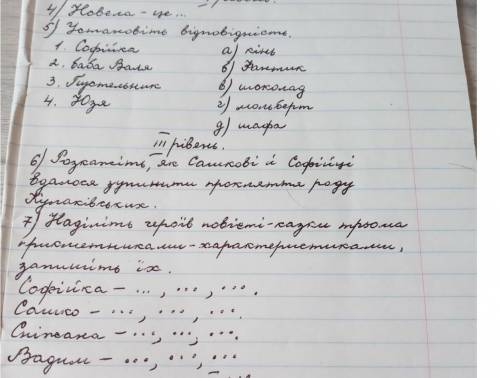 4) Новела - це ...
5) Установіть відповідність.
1. Софійка а) кінь
2. баба Валя б) Фантик
3. Пустельник в) шоколад
4. Юзя г) мольберт
д) шафа
III рівень.
6) Розкажіть, як Сашкові й Софійці
вдалося зупинити прокляття роду
Кулаківських.
7) Наділіть героїв повісті-казки трьома
прикметниками-характеристиками,
запишіть їх.
Софійка - ..., ..., ... .
Сашко - ..., ..., ... .
Сніжана - ..., ..., ... .
Вадим - ..., ..., ...